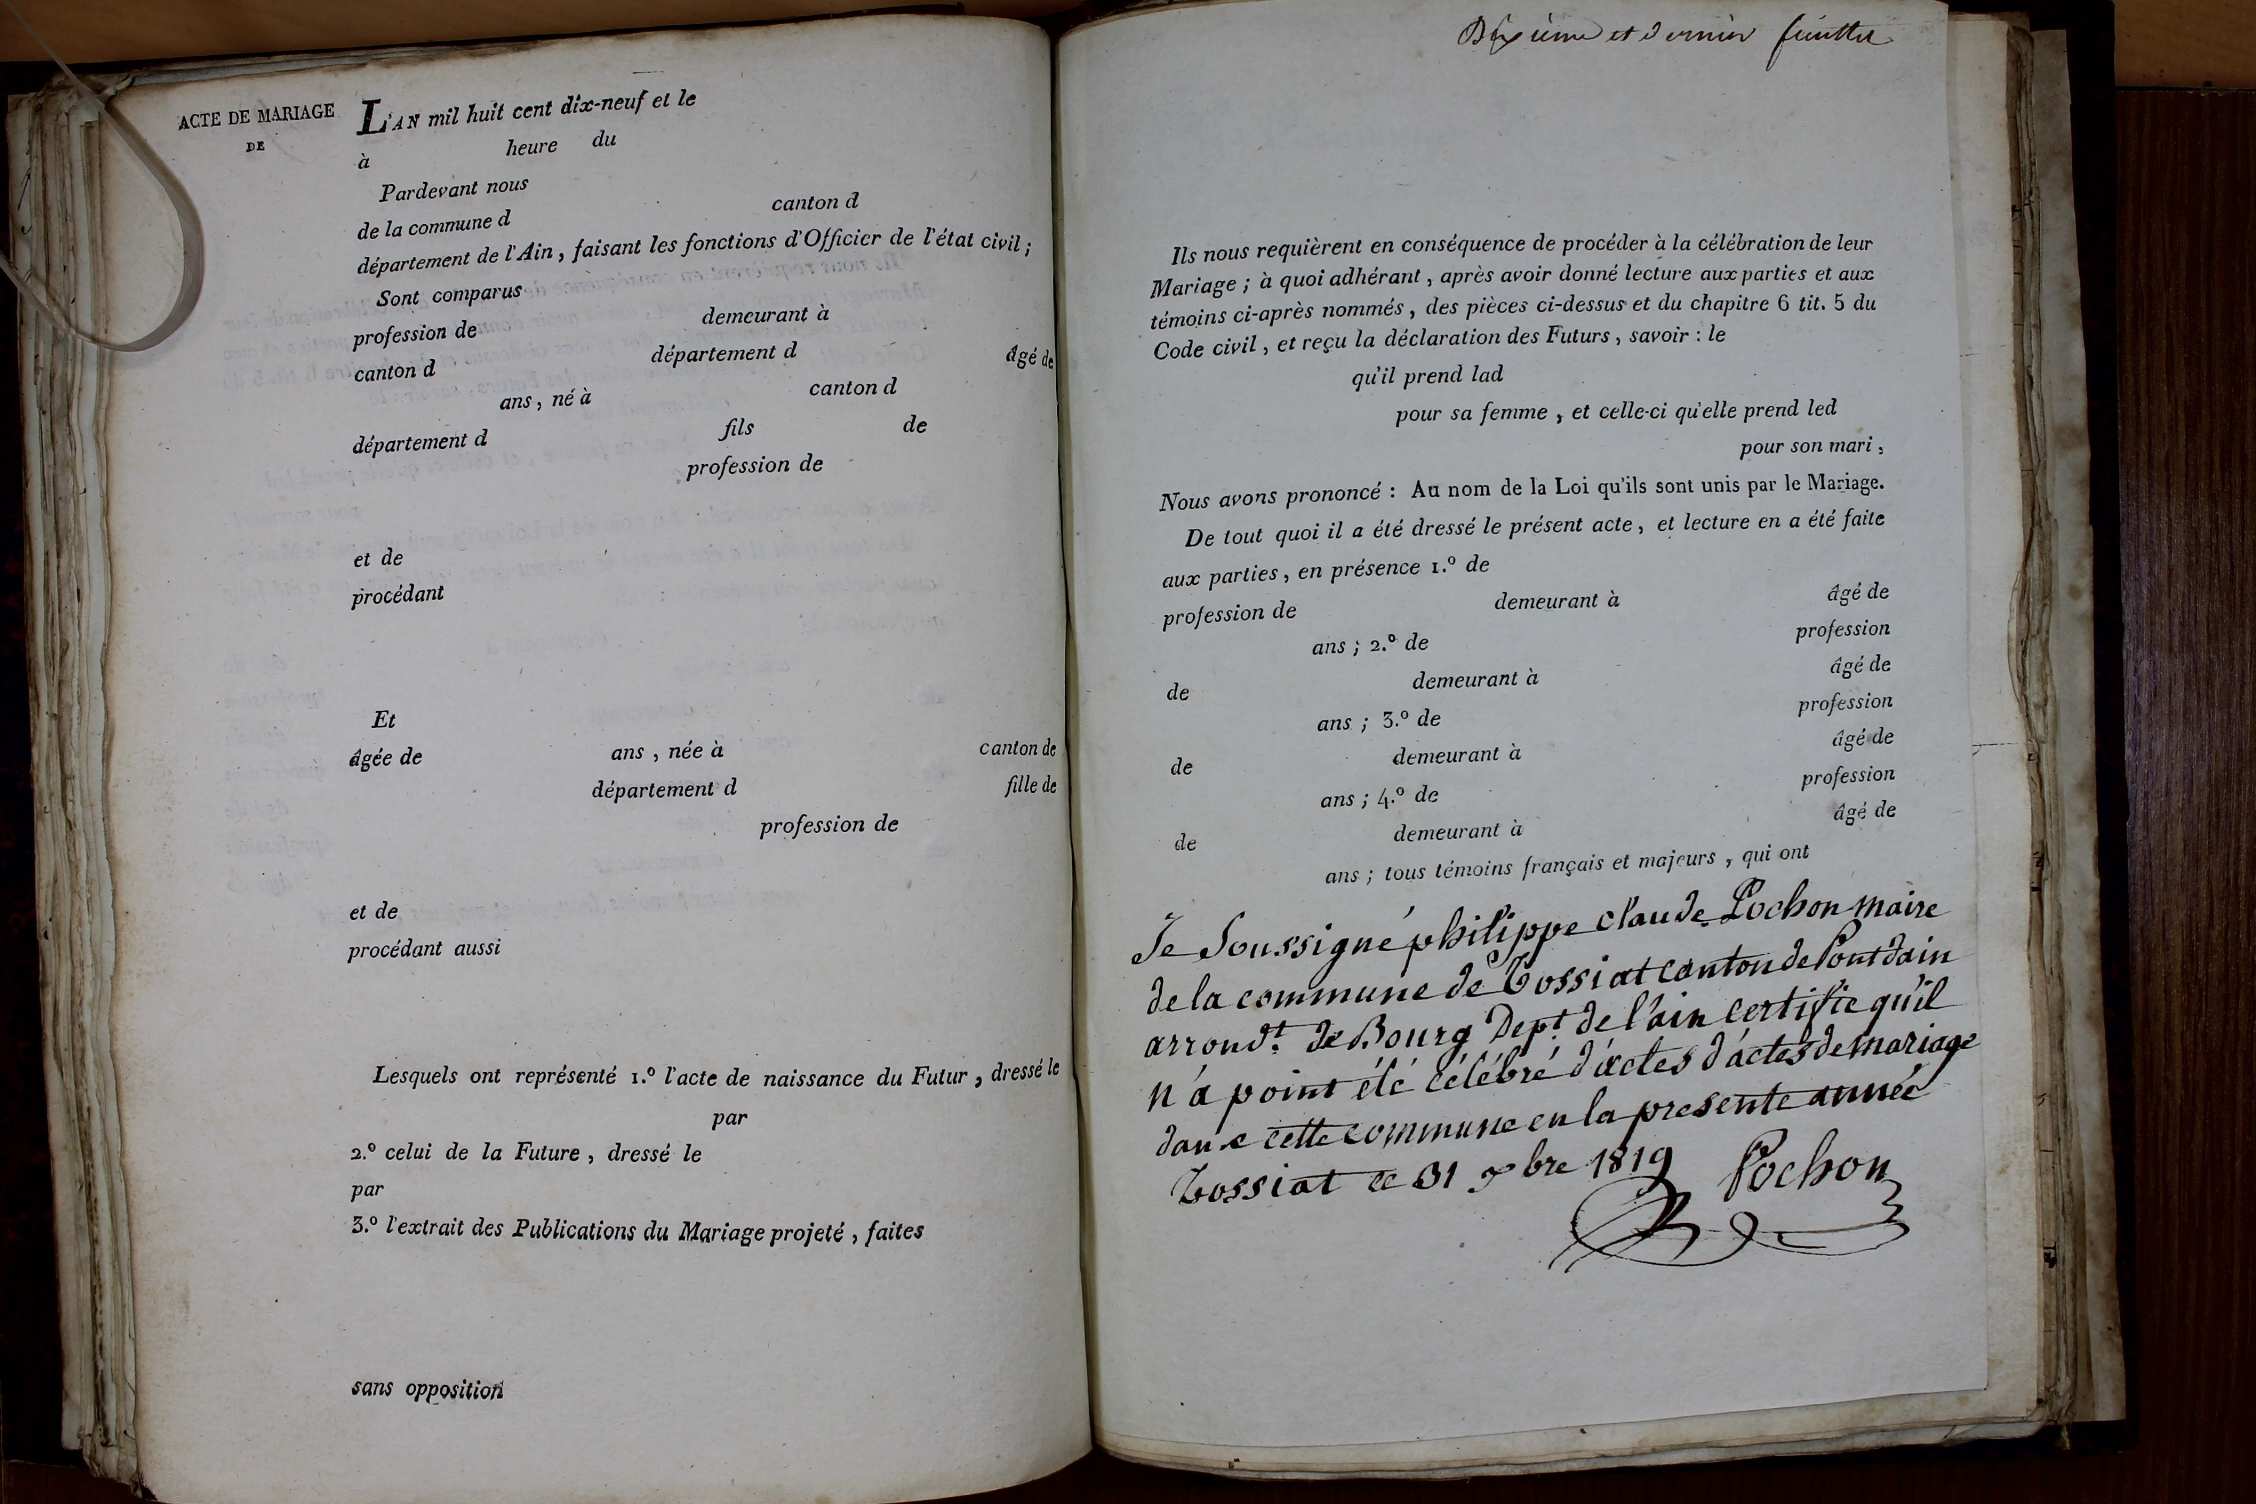 ACTE DE MARIAGE
DE
L'AN mil huit cent dix-neuf et le
à heure du
Pardevant nous
de la commune d canton d
département de l'Ain, faisant les fonctions d'Officier de l'état civil;
Sont comparus
profession de demeurant à
canton d département d âgé de
ans, né à canton d
département d fils de
profession de
et de
procédant
Et
âgée de ans, née à canton de
département d fille de
profession de
et de
procédant aussi
Lesquels ont représenté 1.º l'acte de naissance du Futur, dressé le
par
2.º celui de la Future, dressé le
par
3.º l'extrait des Publications du Mariage projeté, faites
sans opposition
Dixième et dernier feuillet
Ils nous requièrent en conséquence de procéder à la célébration de leur
Mariage; à quoi adhérant, après avoir donné lecture aux parties et aux
témoins ci-après nommés, des pièces ci-dessus et du chapitre 6 tit. 5 du
Code civil, et reçu la déclaration des Futurs, savoir: le
qu'il prend lad
pour sa femme, et celle-ci qu'elle prend led
pour son mari,
Nous avons prononcé: Au nom de la Loi qu'ils sont unis par le Mariage.
De tout quoi il a été dressé le présent acte, et lecture en a été faite
aux parties, en présence 1.º de
profession de demeurant à âgé de
ans; 2.º de profession
de demeurant à âgé de
ans; 3.º de profession
de demeurant à âgé de
ans; 4.º de profession
de demeurant à âgé de
ans; tous témoins français et majeurs, qui ont
Je Soussigné philippe claude Pochon maire
de la commune de Tossiat canton de Pont dain
arrond.t de Bourg Dep.t de l'ain certifie qu'il
n'a point été célébré d'actes d'actes de mariage
dans cette commune en la presente année
Tossiat ce 31 xbre 1819 Pochon